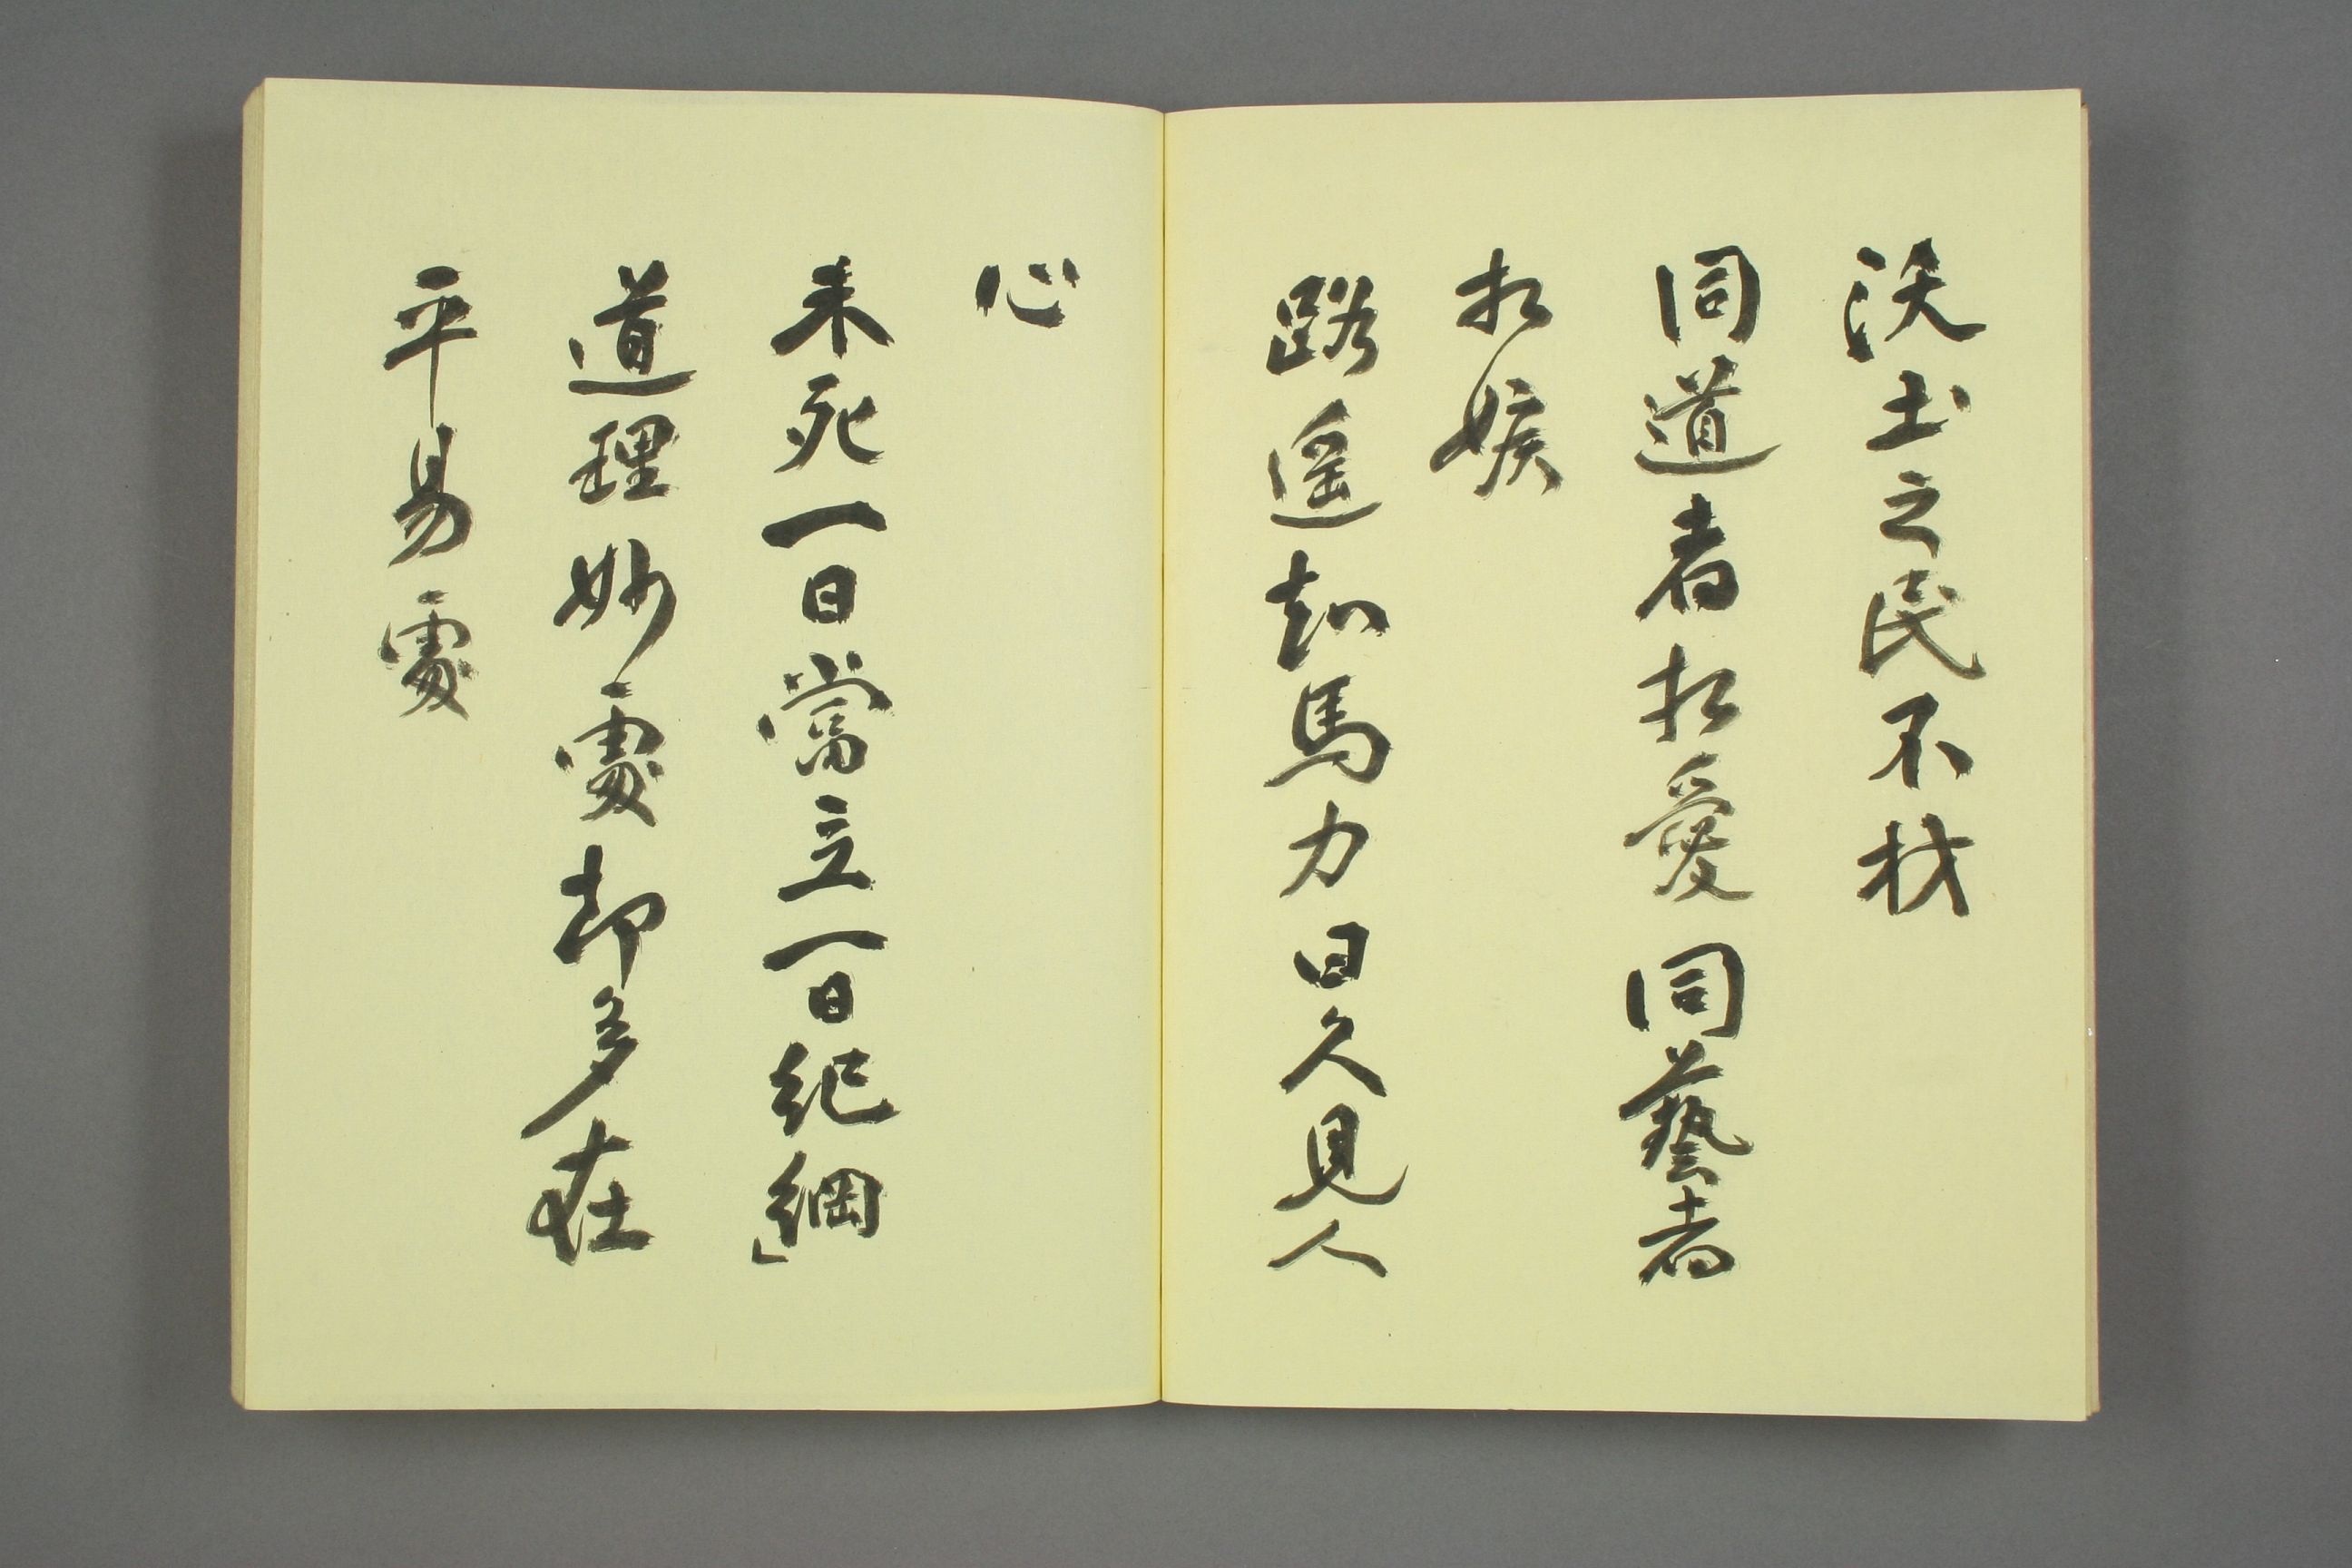 沃土之民不材
同道者相愛同藝者
相嫉
路遥知馬力日久見人
心
未死一日當立一日紀綱」
道理妙處却多在
平易處